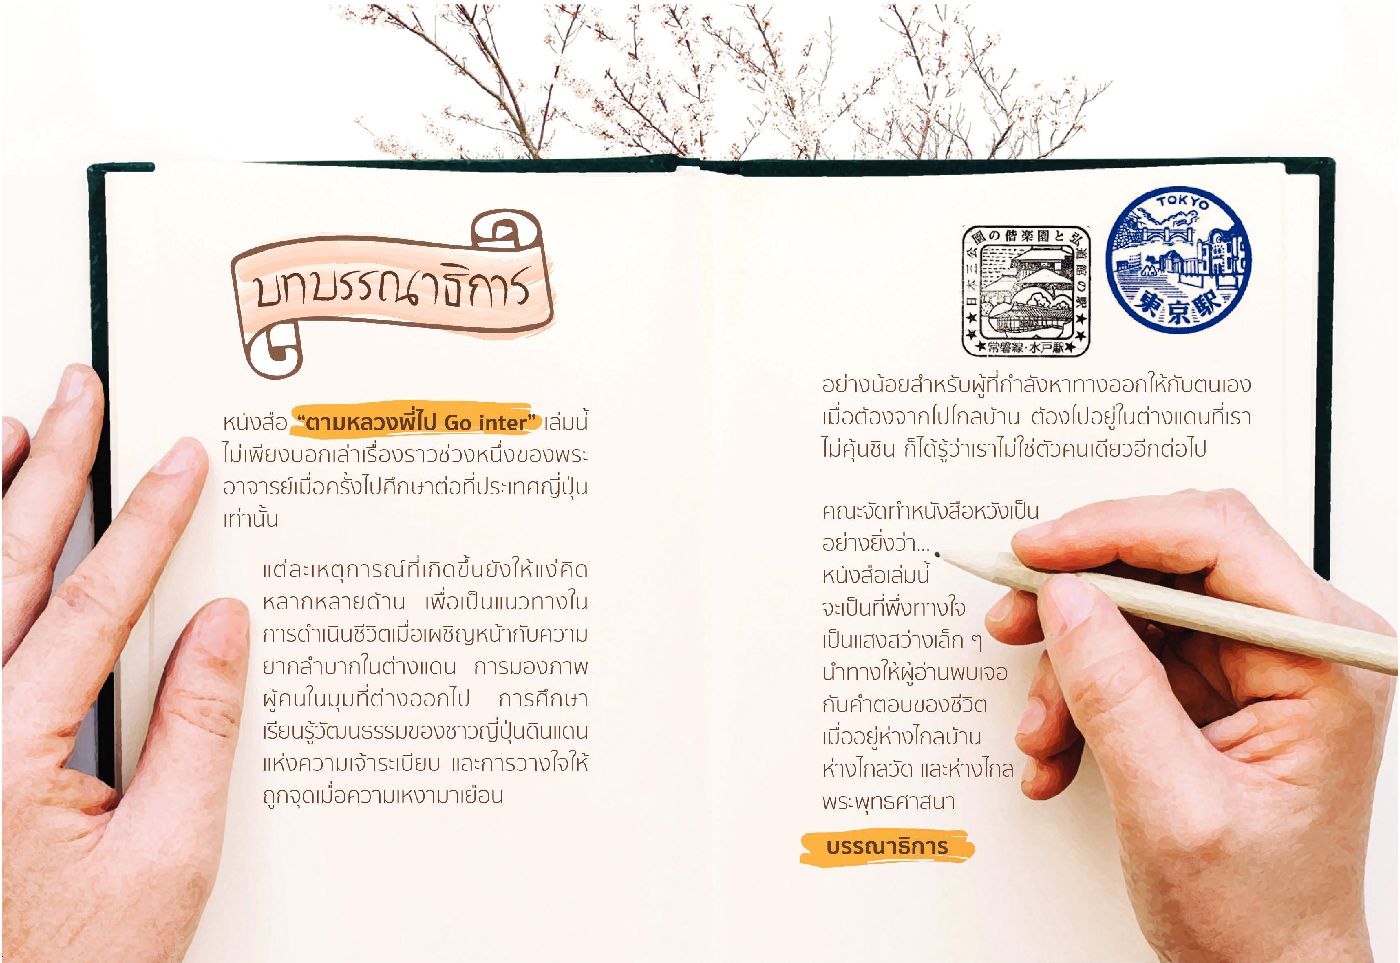 บทบรรณาธิการ
หนังสือ “ตามหลวงพี่ไป Go inter” เล่มนี้
ไม่เพียงบอกเล่าเรื่องราวช่วงหนึ่งของพระ
อาจารย์เมื่อครั้งไปศึกษาต่อที่ประเทศญี่ปุ่น
เท่านั้น
แต่ละเหตุการณ์ที่เกิดขึ้นยังให้แง่คิด
หลากหลายด้าน เพื่อเป็นแนวทางใน
การดำเนินชีวิตเมื่อเผชิญหน้ากับความ
ยากลำบากในต่างแดน การมองภาพ
ผู้คนในมุมที่ต่างออกไป การศึกษา
เรียนรู้วัฒนธรรมของชาวญี่ปุ่นดินแดน
แห่งความเจ้าระเบียบ และการวางใจให้
ถูกจุดเมื่อความเหงามาเยือน
日本三公園の偕楽園と弘道館の駅
常磐線・水戸駅
TOKYO
東京駅
อย่างน้อยสำหรับผู้ที่กำลังหาทางออกให้กับตนเอง
เมื่อต้องจากไปไกลบ้าน ต้องไปอยู่ในต่างแดนที่เรา
ไม่คุ้นชิน ก็ได้รู้ว่าเราไม่ใช่ตัวคนเดียวอีกต่อไป
คณะจัดทำหนังสือหวังเป็น
อย่างยิ่งว่า...
หนังสือเล่มนี้
จะเป็นที่พึ่งทางใจ
เป็นแสงสว่างเล็ก ๆ
นำทางให้ผู้อ่านพบเจอ
กับคำตอบของชีวิต
เมื่ออยู่ห่างไกลบ้าน
ห่างไกลวัด และห่างไกล
พระพุทธศาสนา
บรรณาธิการ